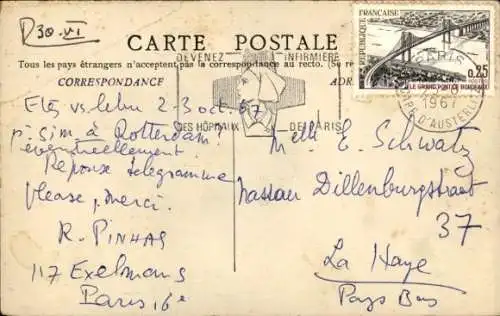 D30.VI
CARTE POSTALE
Tous les pays étrangers n'acceptent pas la correspondance au recto. (Se re
CORRESPONDANCE
ADR
DEVENEZ INFIRMIÈRE
DES HÔPITAUX DE PARIS
FRANÇAISE
REPUBLIQUE
0,25
POSTES
LE GRAND PONT DE BORDEAUX
PARIS
1967
COMPTE D'AUSTERLITZ
Etes vs libre 2-3 oct. 67
p. sim à Rotterdam?
éventuellement
Réponse télégramme
please, merci.
R. PINHAS
117 Exelmans
Paris, 16e
Melle E. Schwatz
Nassau Dillenburgstraat
37
La Haye
Pays Bas